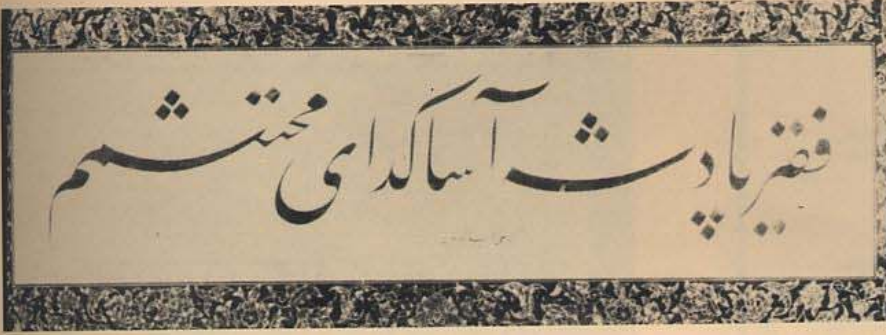 فقیر پادشه آسا گدای محتشمم